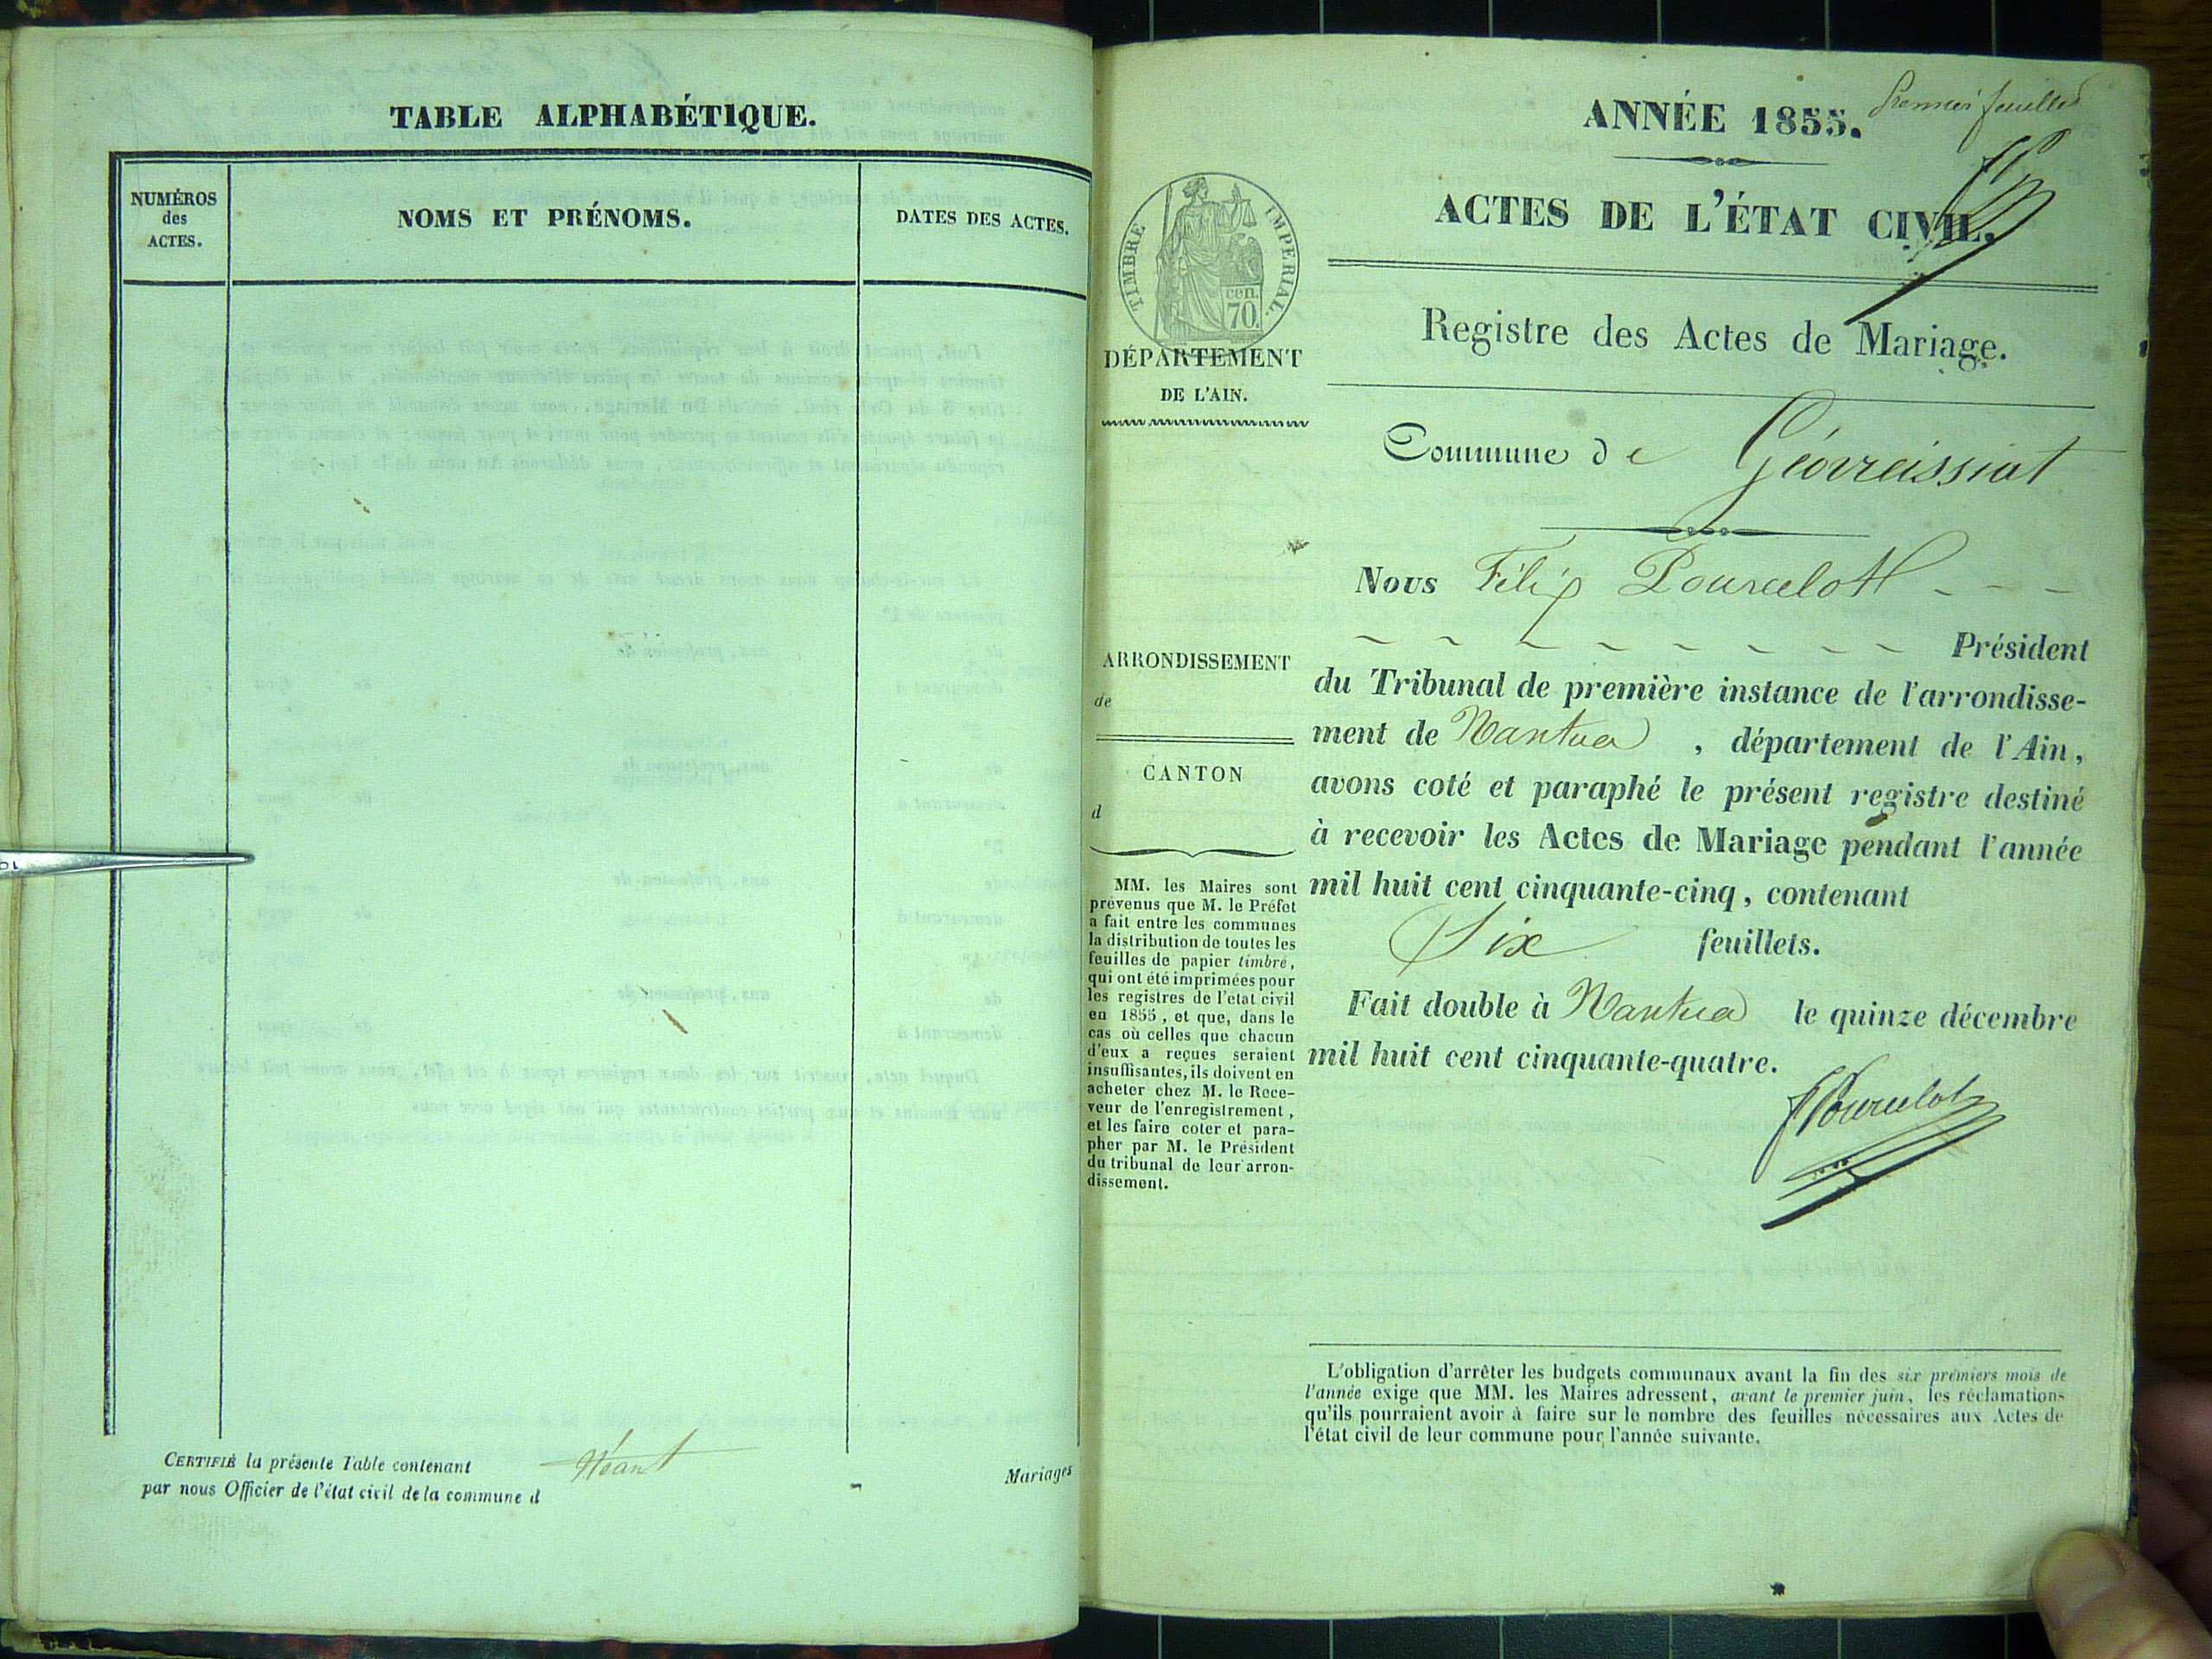 TABLE ALPHABÉTIQUE.
NUMÉROS
des
ACTES.
NOMS ET PRÉNOMS.
DATES DES ACTES.
CERTIFIÉ la présente Table contenant Néant Mariages
par nous Officier de l'état civil de la commune d
Premier feuillet
ANNÉE 1855.
ACTES DE L'ÉTAT CIVIL.
TIMBRE IMPÉRIAL.
cen.
70
DÉPARTEMENT
DE L'AIN.
Registre des Actes de Mariage.
Commune de Géovreissiat
ARRONDISSEMENT
de
CANTON
d
MM. les Maires sont
prévenus que M. le Préfet
a fait entre les communes
la distribution de toutes les
feuilles de papier timbré,
qui ont été imprimées pour
les registres de l'état civil
en 1855, et que, dans le
cas où celles que chacun
d'eux a reçues seraient
insuffisantes, ils doivent en
acheter chez M. le Rece-
veur de l'enregistrement,
et les faire coter et para-
pher par M. le Président
du tribunal de leur arron-
dissement.
Nous Félix Pourcelot - - -
Président
du Tribunal de première instance de l'arrondisse-
ment de Nantua, département de l'Ain,
avons coté et paraphé le présent registre destiné
à recevoir les Actes de Mariage pendant l'année
mil huit cent cinquante-cinq, contenant
Six feuillets.
Fait double à Nantua le quinze décembre
mil huit cent cinquante-quatre.
F Pourcelot
L'obligation d'arrêter les budgets communaux avant la fin des six premiers mois de
l'année exige que MM. les Maires adressent, avant le premier juin, les réclamations
qu'ils pourraient avoir à faire sur le nombre des feuilles nécessaires aux Actes de
l'état civil de leur commune pour l'année suivante.